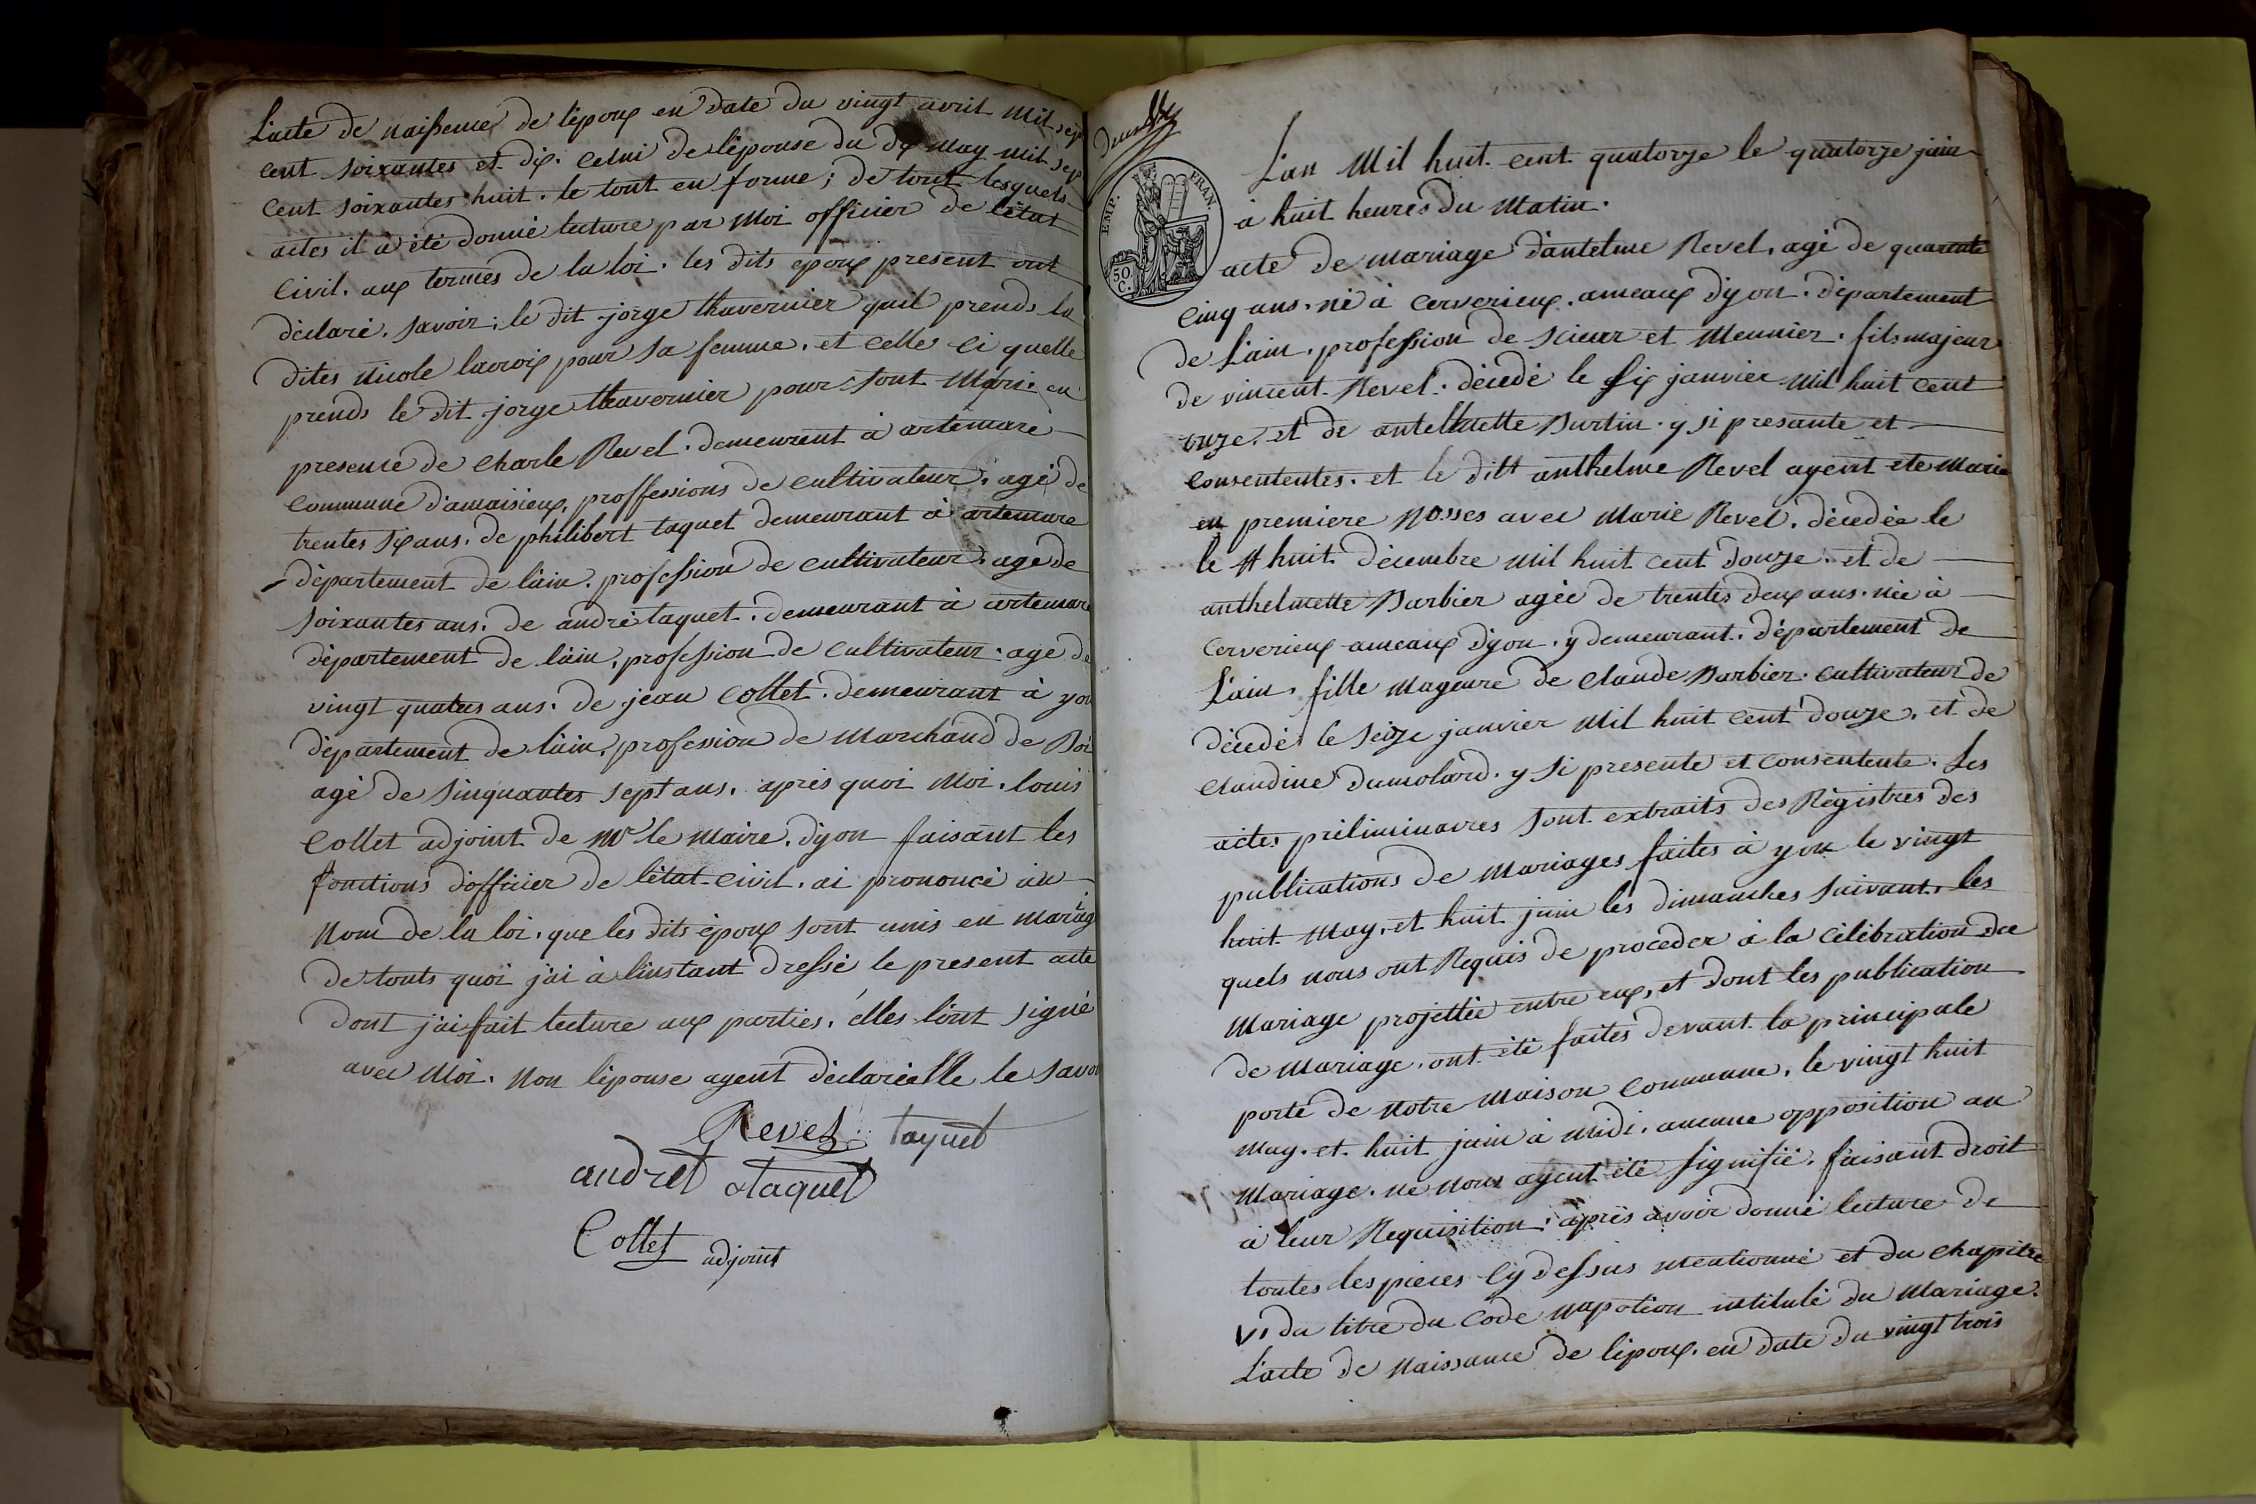 L'acte de naissence de l'epoux en date du vingt avril mil sep
cent soixantes et dix. celui de l'épouse du dix may mil sep
cent soixantes huit. le tout en forme; de tout lesquels
actes il a été donné lecture par moi officier de l'état
civil. aux termes de la loi. les dits epoux present ont
déclaré. savoir; le dit jorge thavernier quil prends la
dites nicole lacroix pour sa femme. et celle ci quelle
prends le dit jorge thavernier pour sont mari. en
presence de charle Revel. demeurent à artemare
commune d'amaisieux, proffessions de cultivateur. agé de
trentes six ans. de philibert taquet demeurant à artemare
département de l'ain. profession de cultivateur. age de
soixantes ans. de andré taquet. demeurant à artemare
département de l'ain, profession de cultivateur. age de
vingt quatres ans. de jean collet. demeurant à yon
département de l'ain, profession de marchand de Boi
agé de sinquantes sept ans. après quoi moi. louis
collet adjoint de Mr le maire. d'yon faisant les
fonctions d'officier de l'état-civil. ai prononcé au
nom de la loi. que les dits époux sont unis en mariag
de touts quoi j'ai à l'instant dressé le present acte
dont j'ai fait lecture aux parties. elles l'ont signé
avec moi. non l'épouse agent déclaré elle le savo
Revel taquet
andret taquet
Collet adjoint
EMP. FRAN.
50 C.
L'an mil huit cent quatorze le quatorze juin
à huit heures du matin.
acte de mariage d'antelme Revel, agé de quarante
cinq ans. né à cerverieux. ameaux d'yon. département
de l'ain. profession de scieur et meunier. fils majeur
de vincent Revel. décédé le six janvier mil huit cent
onze. et de antelmette Burtin. y si presante et
consententes. et le ditt anthelme Revel ayent ete marie
en premiere nosses avec marie Revel. décedée le
le huit decembre mil huit cent douze. et de
anthelmette Barbier agée de trentes deux ans. née à
cerverieux ameaux d'yon. y demeurant. département de
l'ain. fille mageure de claude Barbier. cultivateur de
décedé le seize janvier mil huit cent douze. et de
claudine dumolard. y si presente et consentente. Les
actes préliminaires sont extraits des Régistres des
publications de mariages faites à yon le vingt
huit may. et huit juin les dimanches suivant. les
quels nous ont Requis de proceder à la célébration du
mariage projettée entre eux, et dont les publication
de mariage. ont été faites devant la principale
porte de notre maison commune. le vingt huit
may. et huit juin à midi. aucune opposition au
mariage. ne nous ayent été signifié. faisant droit
à leur Requisition; après avoir donné lecture de
toutes les pieces cy dessus mentionné et du chapitre
vi du titre du code napoléon intitulé du mariage.
L'acte de naissance de l'époux. en date du vingt trois